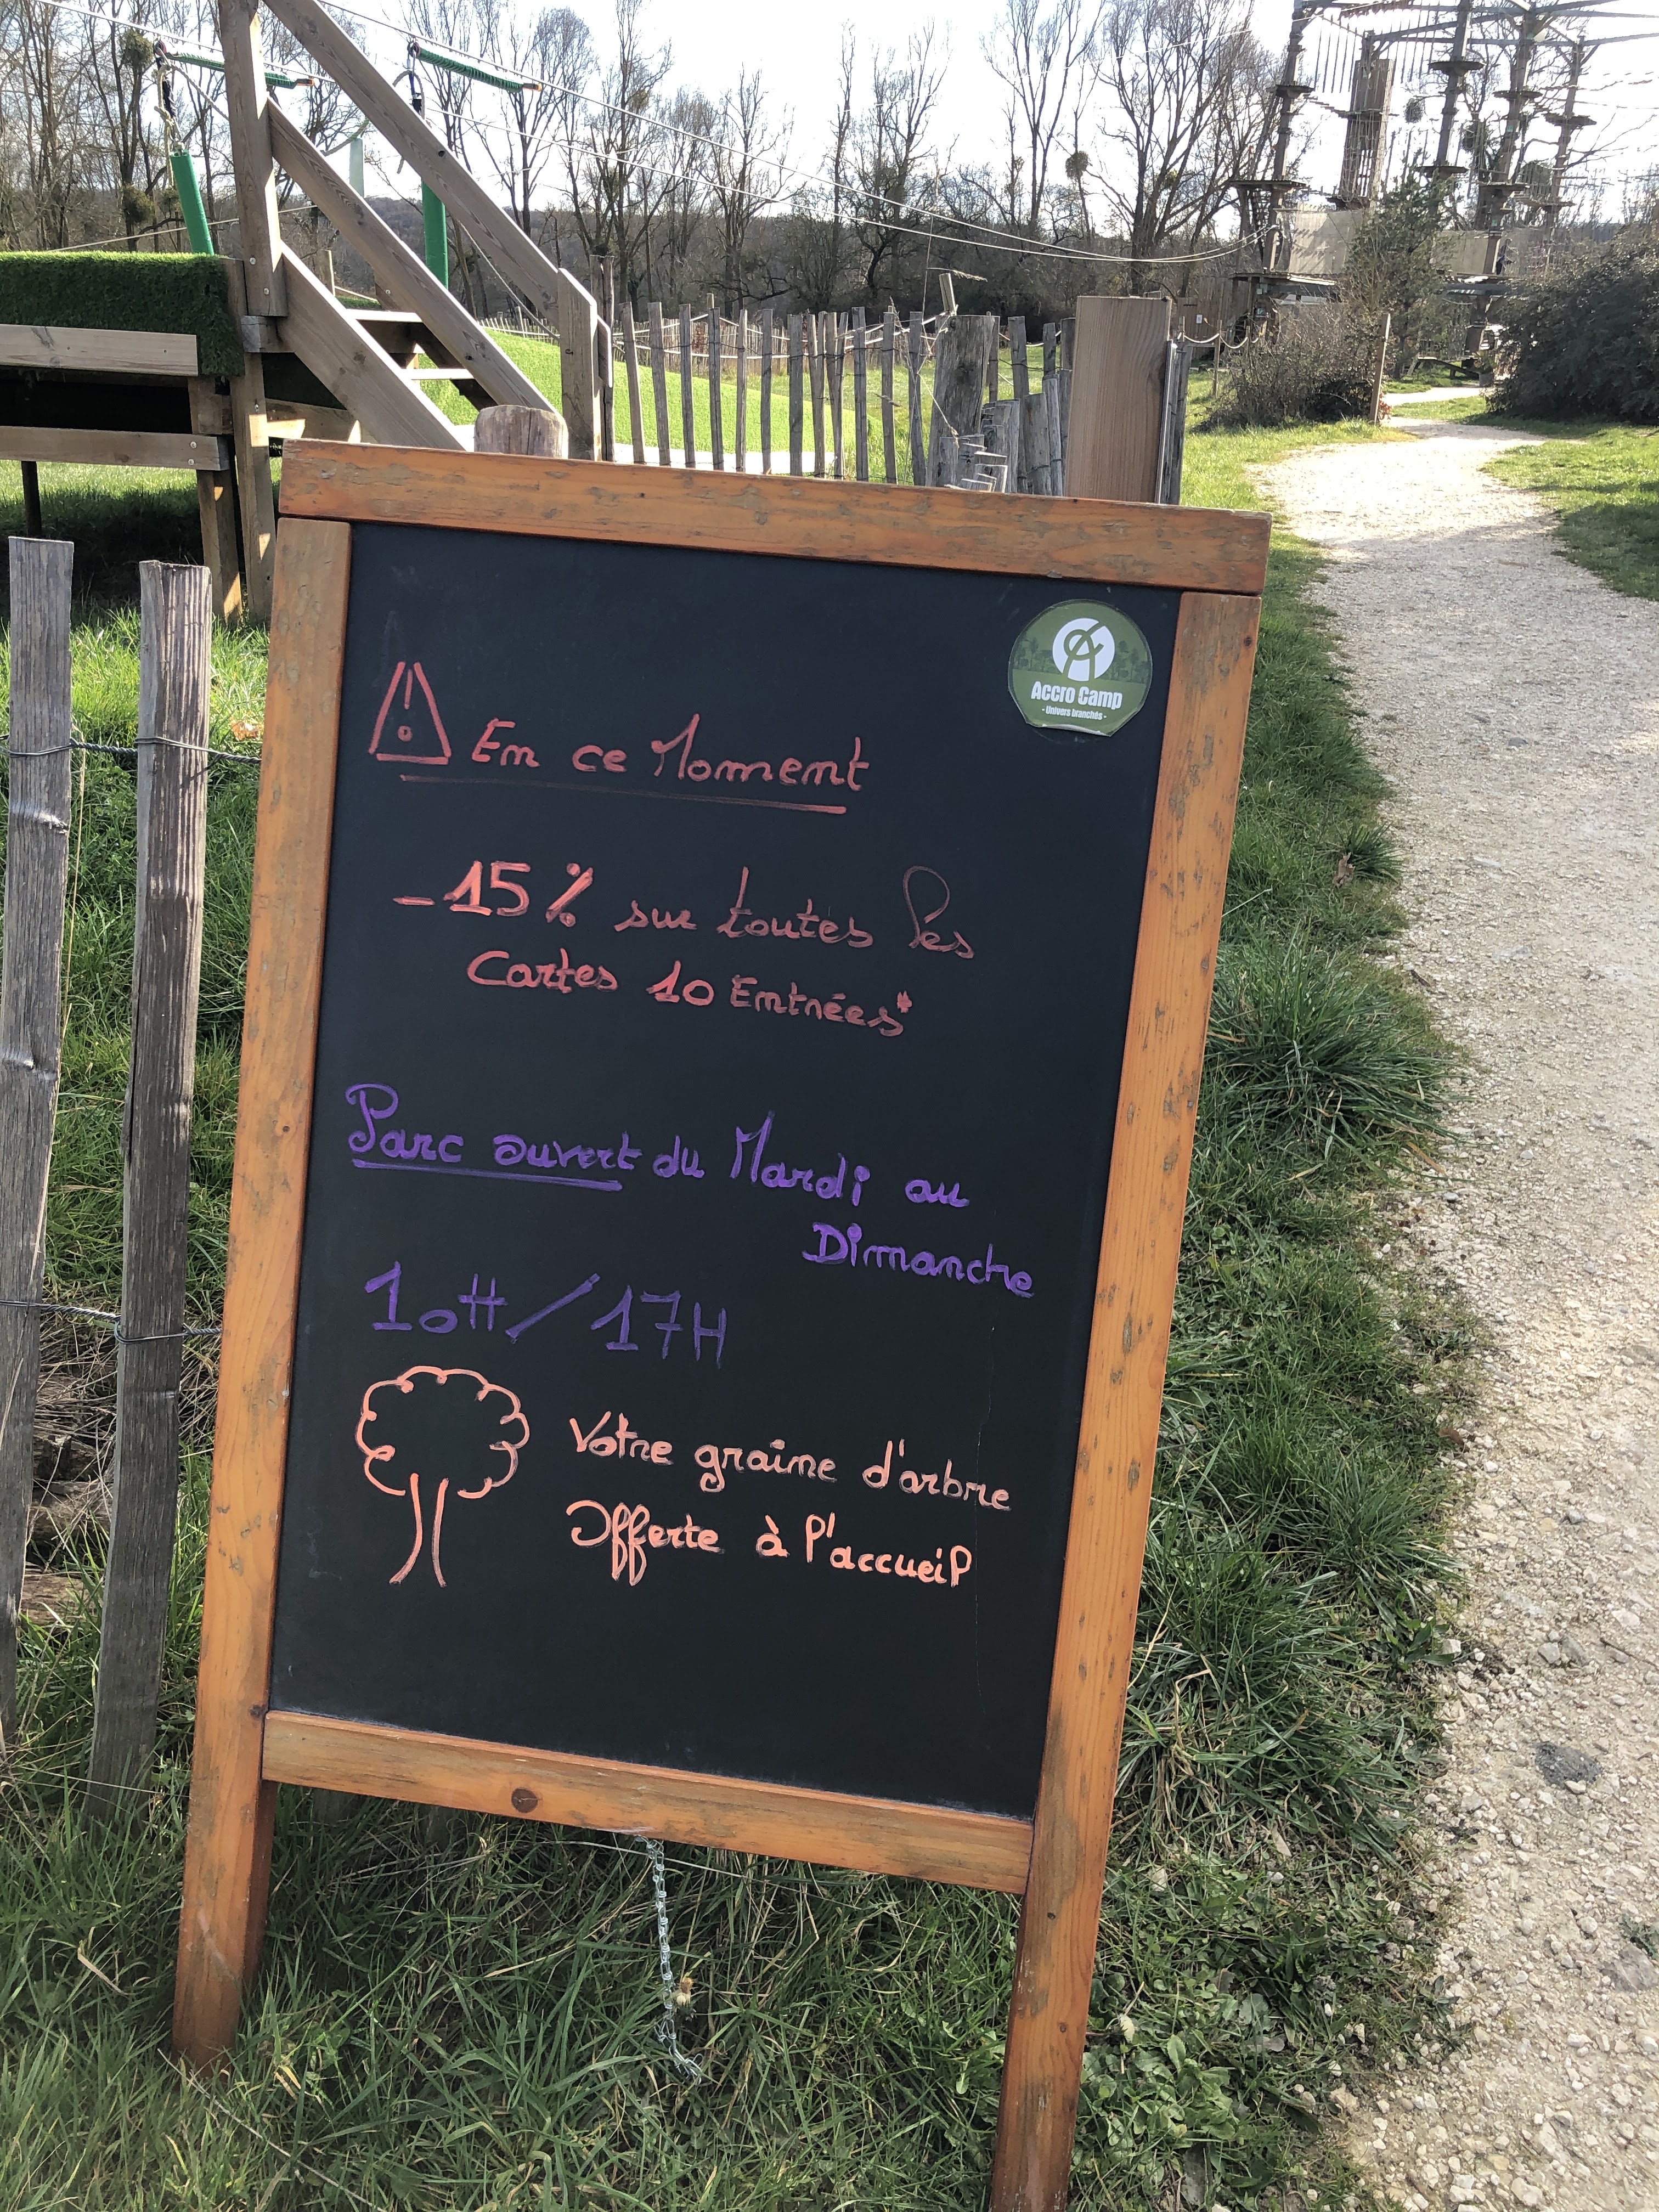 Accro Camp
- Univers branchés -
En ce Moment
- 15 % sur toutes les
Cartes 10 Entrées*
Parc ouvert du Mardi au
Dimanche
10H / 17H
Votre graine d'arbre
Offerte à l'accueil